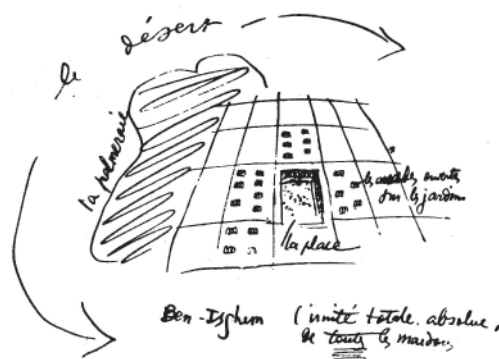 le désert
la palmeraie
les arcades ouvertes
sur les jardins
la place
Ben-Isghem l'unité totale. absolue,
de toutes les maisons